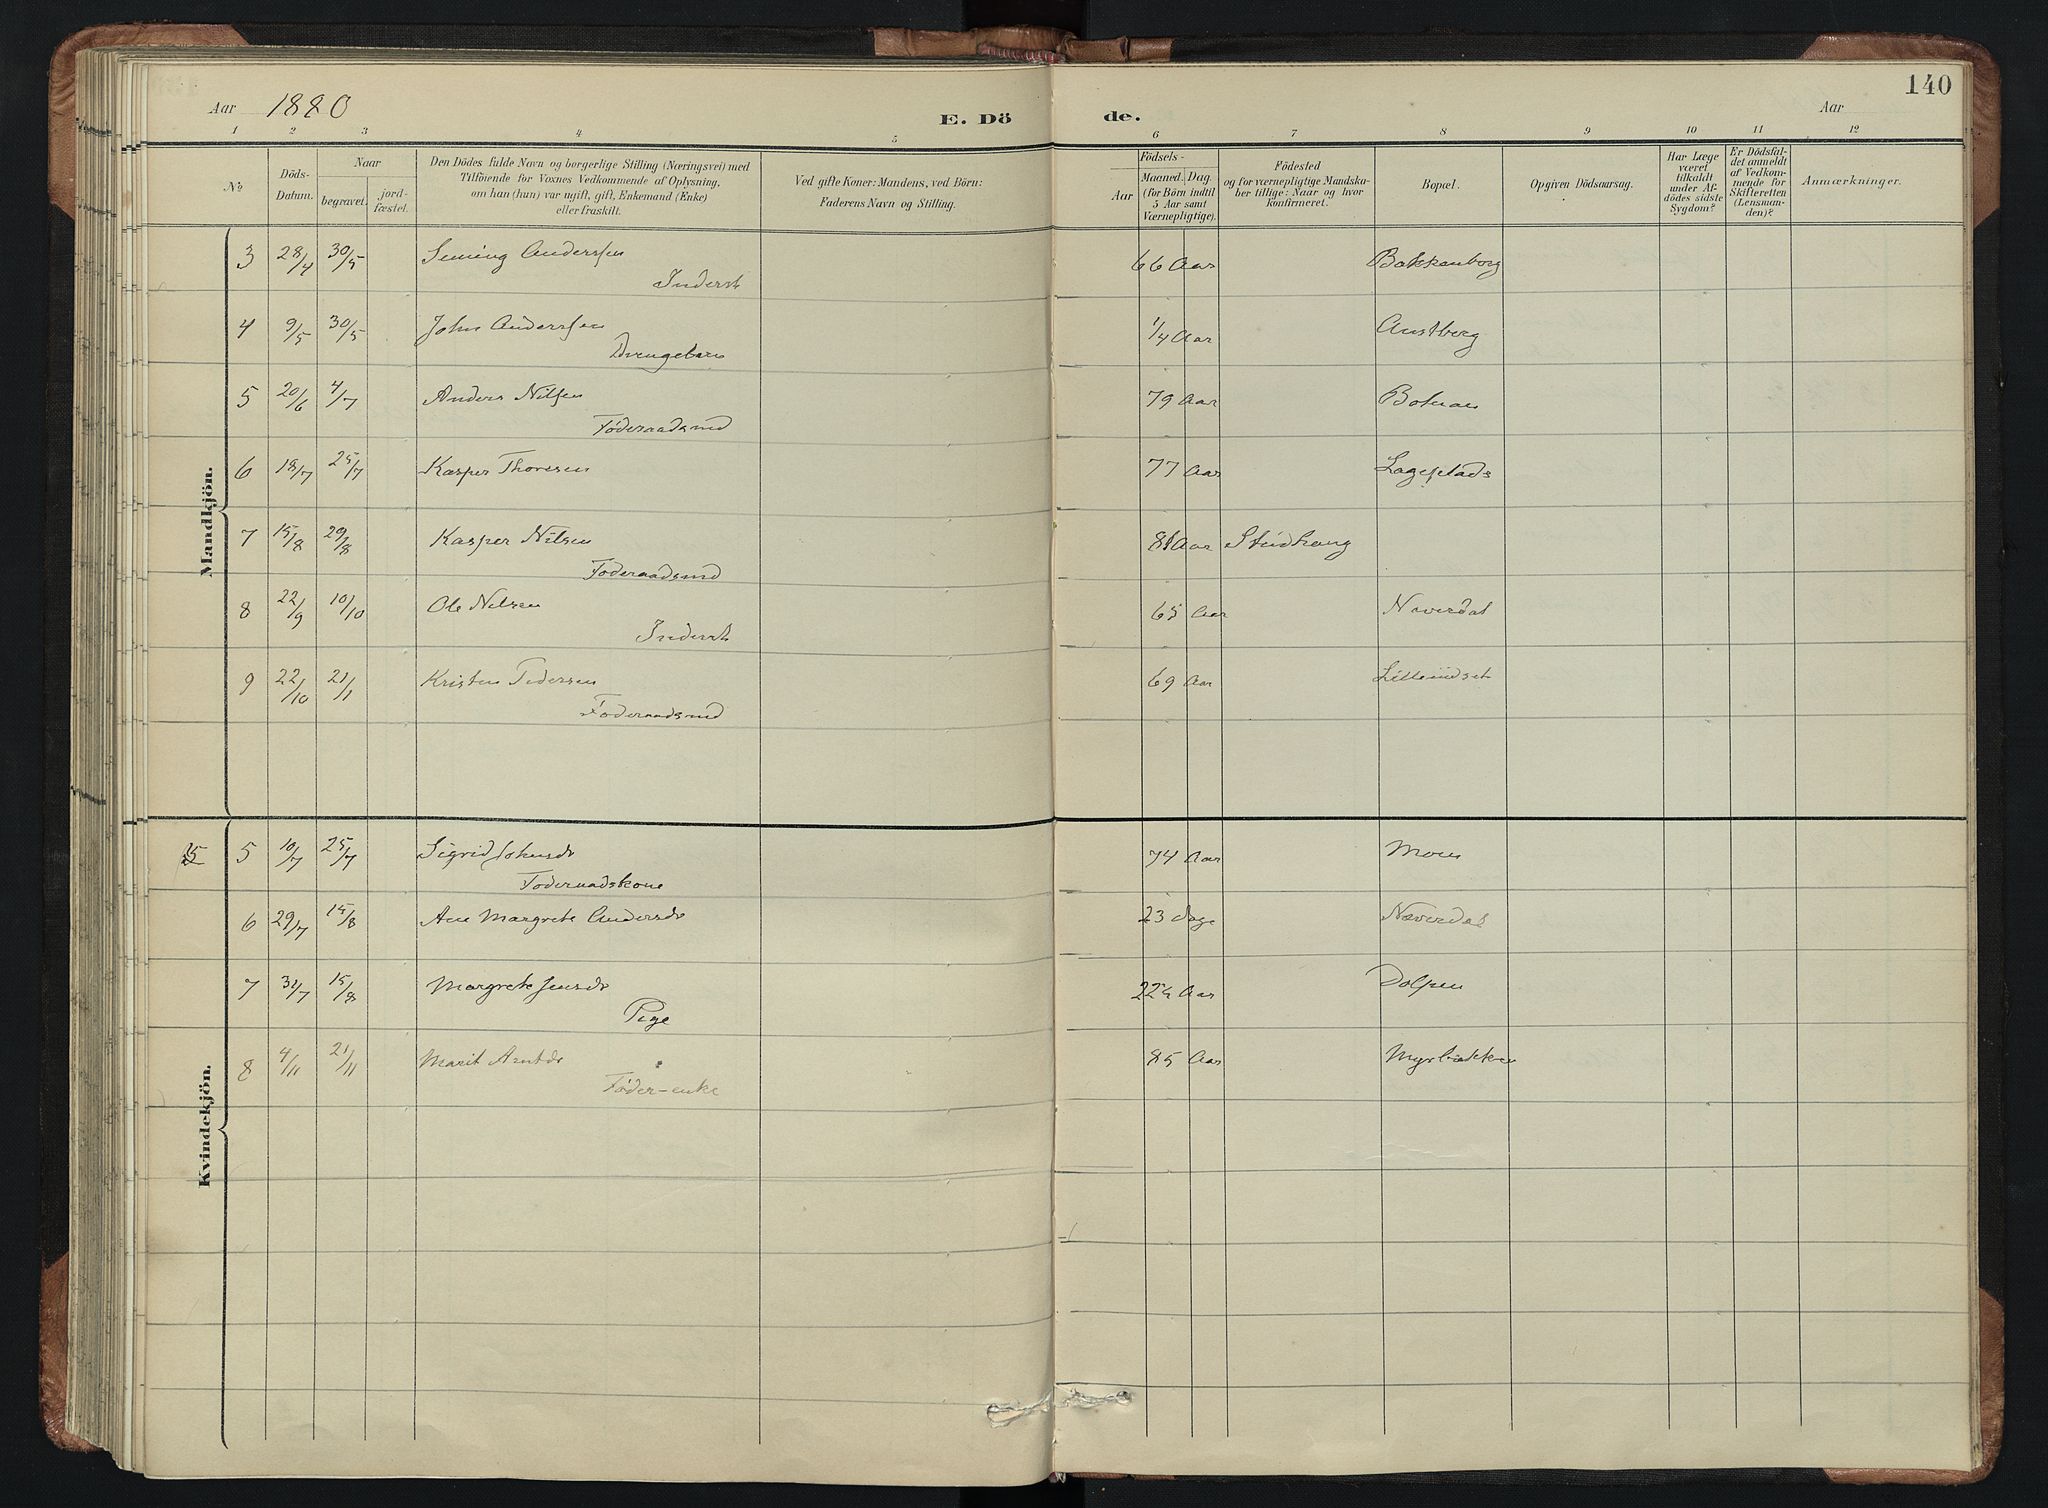 140
Aar 1880 E. Dö de. Aar
1 2 3 4 5 6 7 8 9 10 11 12
No
Döds-Datum.
Naar
begravet.
jord-fæstet.
Den Dödes fulde Navn og borgerlige Stilling (Næringsvei) med
Tilföiende for Voxnes Vedkommende af Oplysning,
om han (hun) var ugift, gift, Enkemand (Enke)
eller fraskilt.
Ved gifte Koner: Mandens, ved Börn:
Faderens Navn og Stilling.
Födsels-
Aar
Maaned. Dag.
(for Börn indtil
5 Aar samt
Værnepligtige).
Födested
og for værnepligtige Mandska-
ber tillige: Naar og hvor
konfirmeret.
Bopæl.
Opgiven Dödsaarsag.
Har Læge
været
tilkaldt
under Af-
dödes sidste
Sygdom?
Er Dödsfal-
det anmeldt
af Vedkom-
mende for
Skifteretten
(Lensman-
den)?
Anmærkninger.
Mandkjön.
3 28/4 30/5 Seming Anderssen 66 Aar Bakkenborg
Inderst
4 9/5 30/5 John Anderssen 1/4 Aar Austberg
Drengebarn
5 20/6 4/7 Anders Nilsen 79 Aar
Föderaadsmd
6 18/7 25/7 Kasper Thoresen 77 Aar
7 15/8 29/8 Kasper Nilsen Aar
Föderaadsmd
8 22/9 10/10 Ole Nilsen 65 Aar Naverdal
Inderst
9 22/10 21/1 Kristen Pedersen 69 Aar Lilleindset
Föderaadsmd
Kvindekjön.
5 10/7 25/7 Sigrid Johnsdr 74 Aar Moen
Föderaadskone
6 29/7 15/8 Ane Margrete Andersdr 23 dage Næverdal
7 15/8 Margrete Jensdr Aar Dolpen
Pige
8 4/11 21/11 Marit Arntdr 85 Aar Myrbækken
Föder-enke